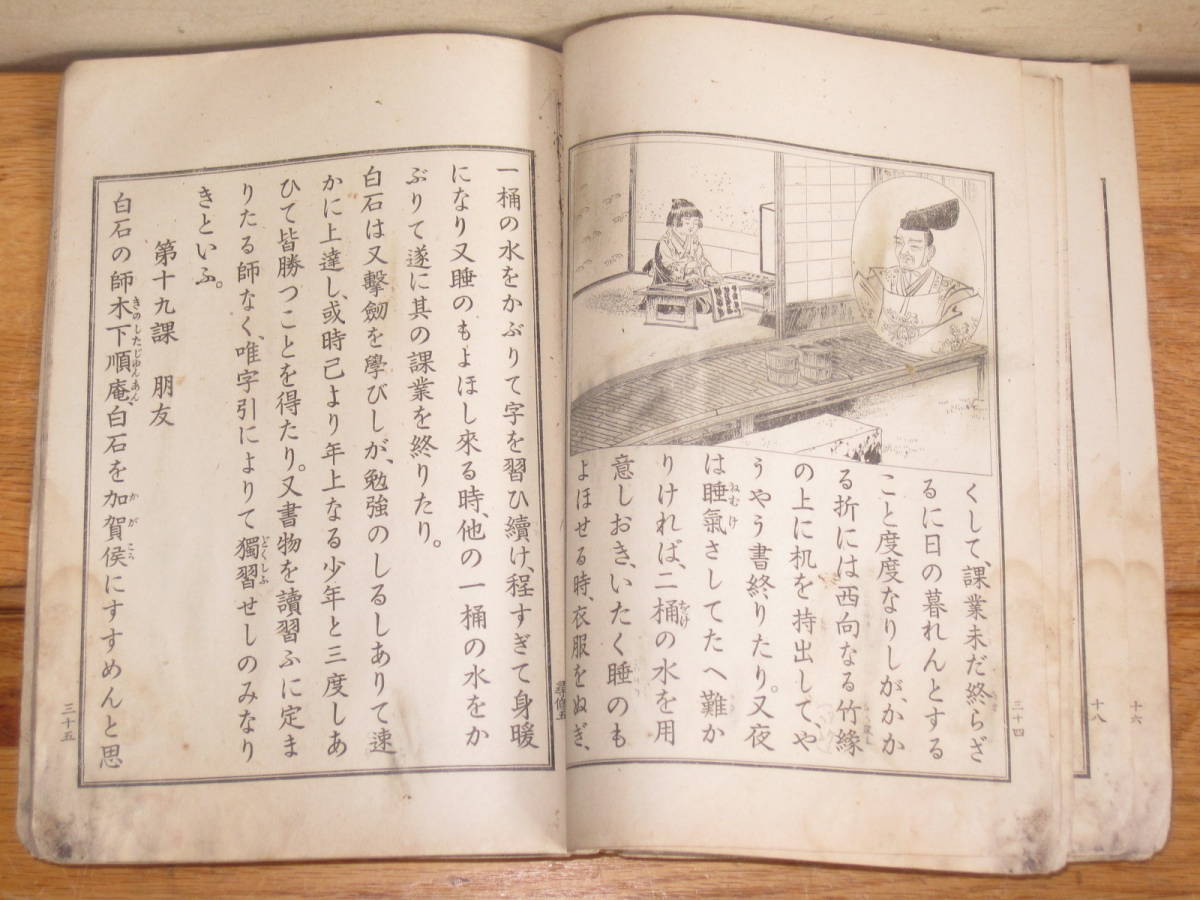 くして、課業未だ終らざ
るに日の暮れんとする
こと度度なりしが、かか
る折には西向なる竹縁
の上に机を持出して、や
うやう書終りたり。又夜
は睡氣さしてたへ難か
りければ、二桶の水を用
意しおき、いたく睡のも
よほせる時、衣服をぬぎ、
三十四
十八
十六
一桶の水をかぶりて字を習ひ續け、程すぎて身暖
になり又睡のもよほし來る時、他の一桶の水をか
ぶりて遂に其の課業を終りたり。
白石は又擊劒を學びしが、勉強のしるしありて速
かに上達し、或時己より年上なる少年と三度しあ
ひて皆勝つことを得たり。又書物を讀習ふに定ま
りたる師なく、唯字引によりて獨習せしのみなり
きといふ。
第十九課 朋友
白石の師木下順庵、白石を加賀侯にすすめんと思
尋修五
三十五